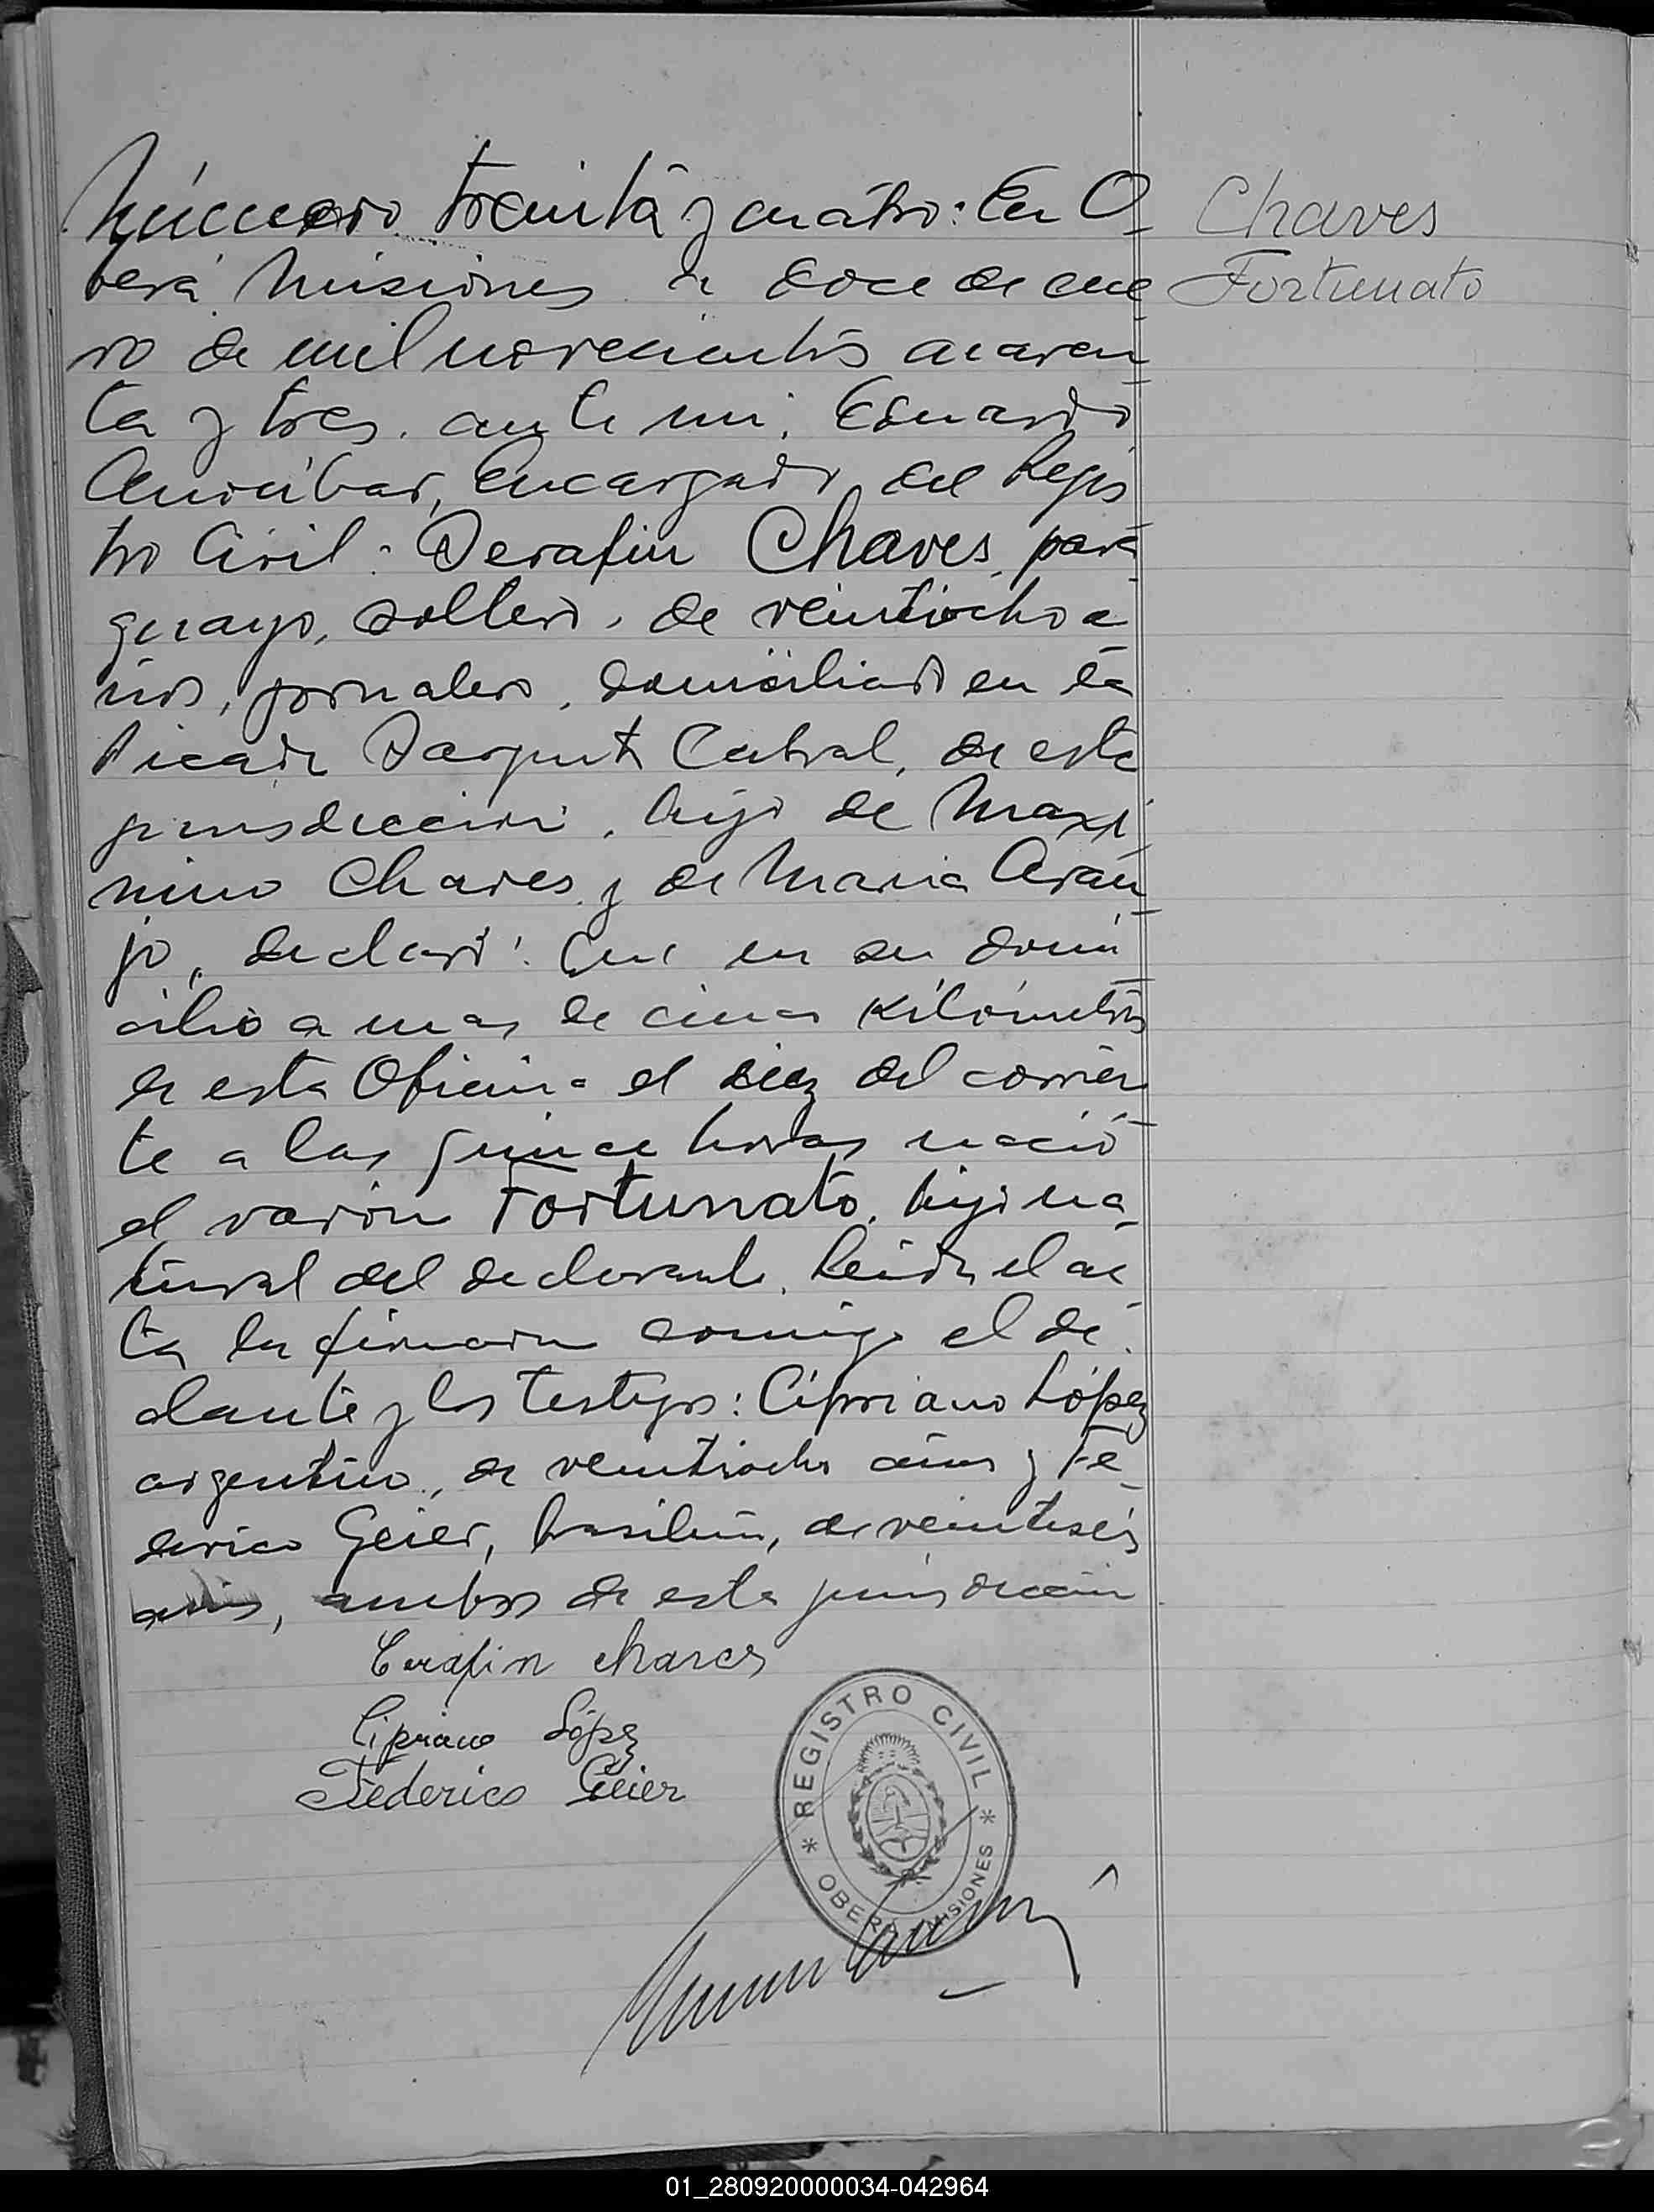 Número treinta y cuatro: En O_
berá Misiones a doce de ene
ro de mil novecientos cuaren
ta y tres, ante mi, Eduardo
Encargado del Regis
tro Civil: Serafin Chaves, para
guayo, soltero, de veintiocho a
ños, jornalero, domiciliado en la
Picada Sargento Cabral, de esta
jurisdiccion, hijo de Maxi
mino Chaves y de Maria Arau
jo, declaró: Que en su domi
cilio a mas de cinco kilómetros
de esta Oficina el diez del corrien
te a las quince horas nació
el varón Fortunato, hijo na_
tural del declarante. Leida el ac
ta la firmaron conmigo el de
clarante y los testigos: Cipriano López
argentino, de veintiocho años y Fe_
derico Geier, brasilero, de veintiseis
años, ambos de esta jurisdiccion
Cerafin Chaves
Cipriano López
Federico Geier
* REGISTRO CIVIL *
OBERÁ MISIONES
Chaves
Fortunato
01_280920000034-042964